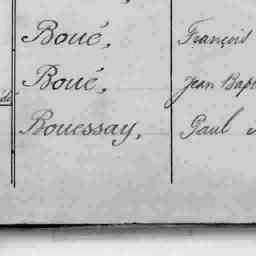 Boué, François
Boué, Jean Bap
Bouessay, Paul